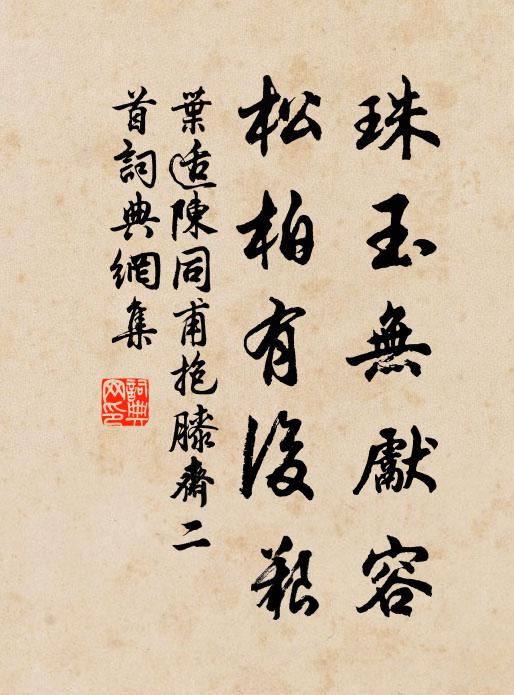 珠玉無獻容
松柏有後艱
葉適陳同甫抱膝齋二
首詞典網集
詞典網印